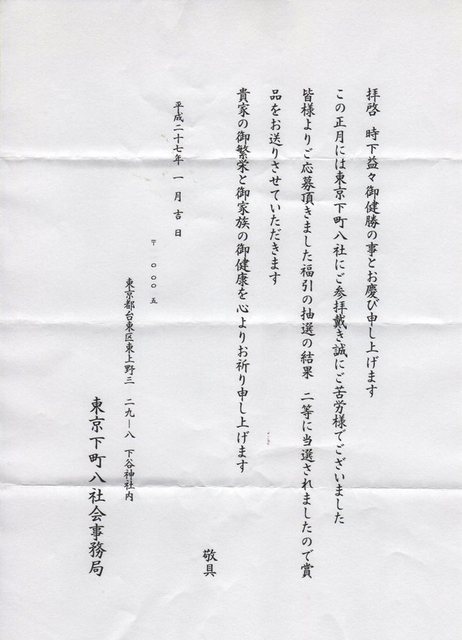 拝啓　時下益々御健勝の事とお慶び申し上げます
この正月には東京下町八社にご参拝戴き誠にご苦労様でございました
皆様よりご応募頂きました福引の抽選の結果　二等に当選されましたので賞
品をお送りさせていただきます
貴家の御繁栄と御家族の御健康を心よりお祈り申し上げます
敬具
平成二十七年　一月吉日
〒　〇〇〇　五
東京都台東区東上野三　二九ー八　下谷神社内
東京下町八社会事務局